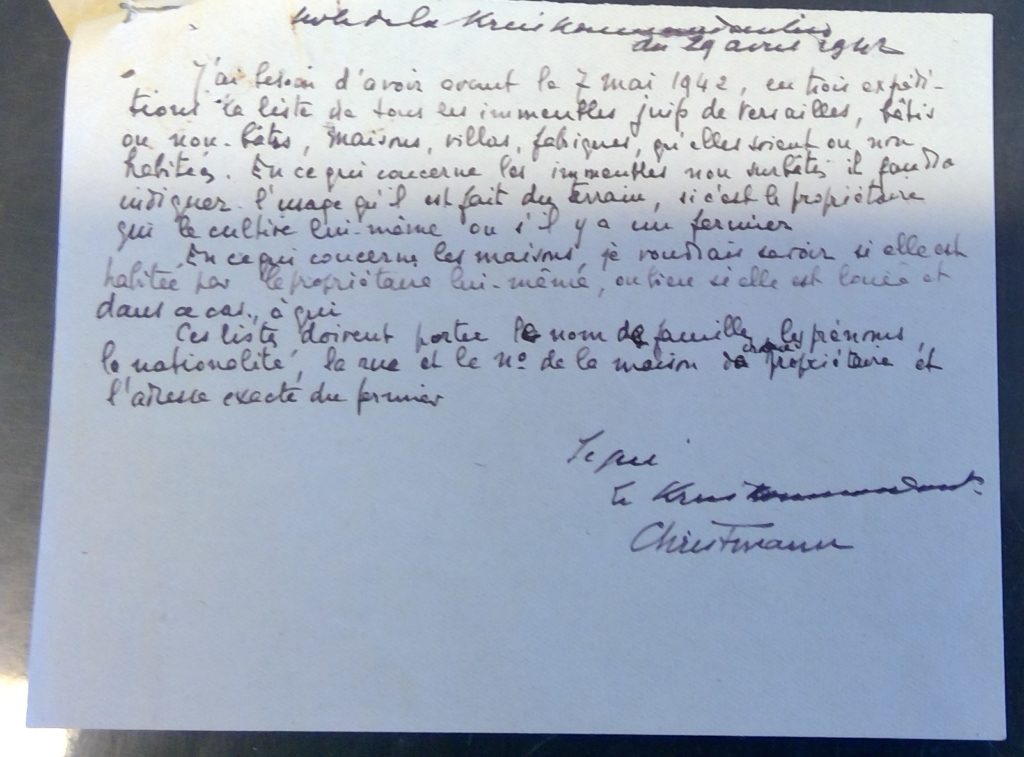 Note de la Kreiskommandantur
du 29 avril 1942
J'ai besoin d'avoir avant le 7 mai 1942, en trois expédi-
tions la liste de tous les immeubles juifs de Versailles, bâtis
ou non-bâtis, maisons, villas, fabriques, qu'elles soient ou non
habitées. En ce qui concerne les immeubles non bâtis il faudra
indiquer l'usage qu'il est fait du terrain, si c'est le propriétaire
qui le cultive lui-même ou s'il y a un fermier
En ce qui concerne les maisons, je voudrais savoir si elle est
habitée par le propriétaire lui-même, ou bien si elle est louée et
dans ce cas, à qui
Ces listes doivent porter le nom de famille, les prénoms,
la nationalité, la rue et le n° de la maison de chaque propriétaire et
l'adresse exacte du fermier
Signé
Le Kreiskommandant
Christmann